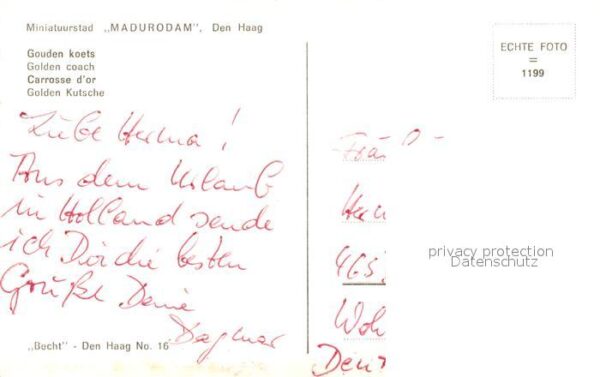 Miniatuurstad „MADURODAM”, Den Haag
Gouden koets
Golden coach
Carrosse d'or
Golden Kutsche
Liebe Herma!
Aus dem Urlaub
in Holland sende
ich Dir die besten
Grüße Deine
Dagmar
„Becht" - Den Haag No. 16
ECHTE FOTO
=
1199
privacy protection
Datenschutz